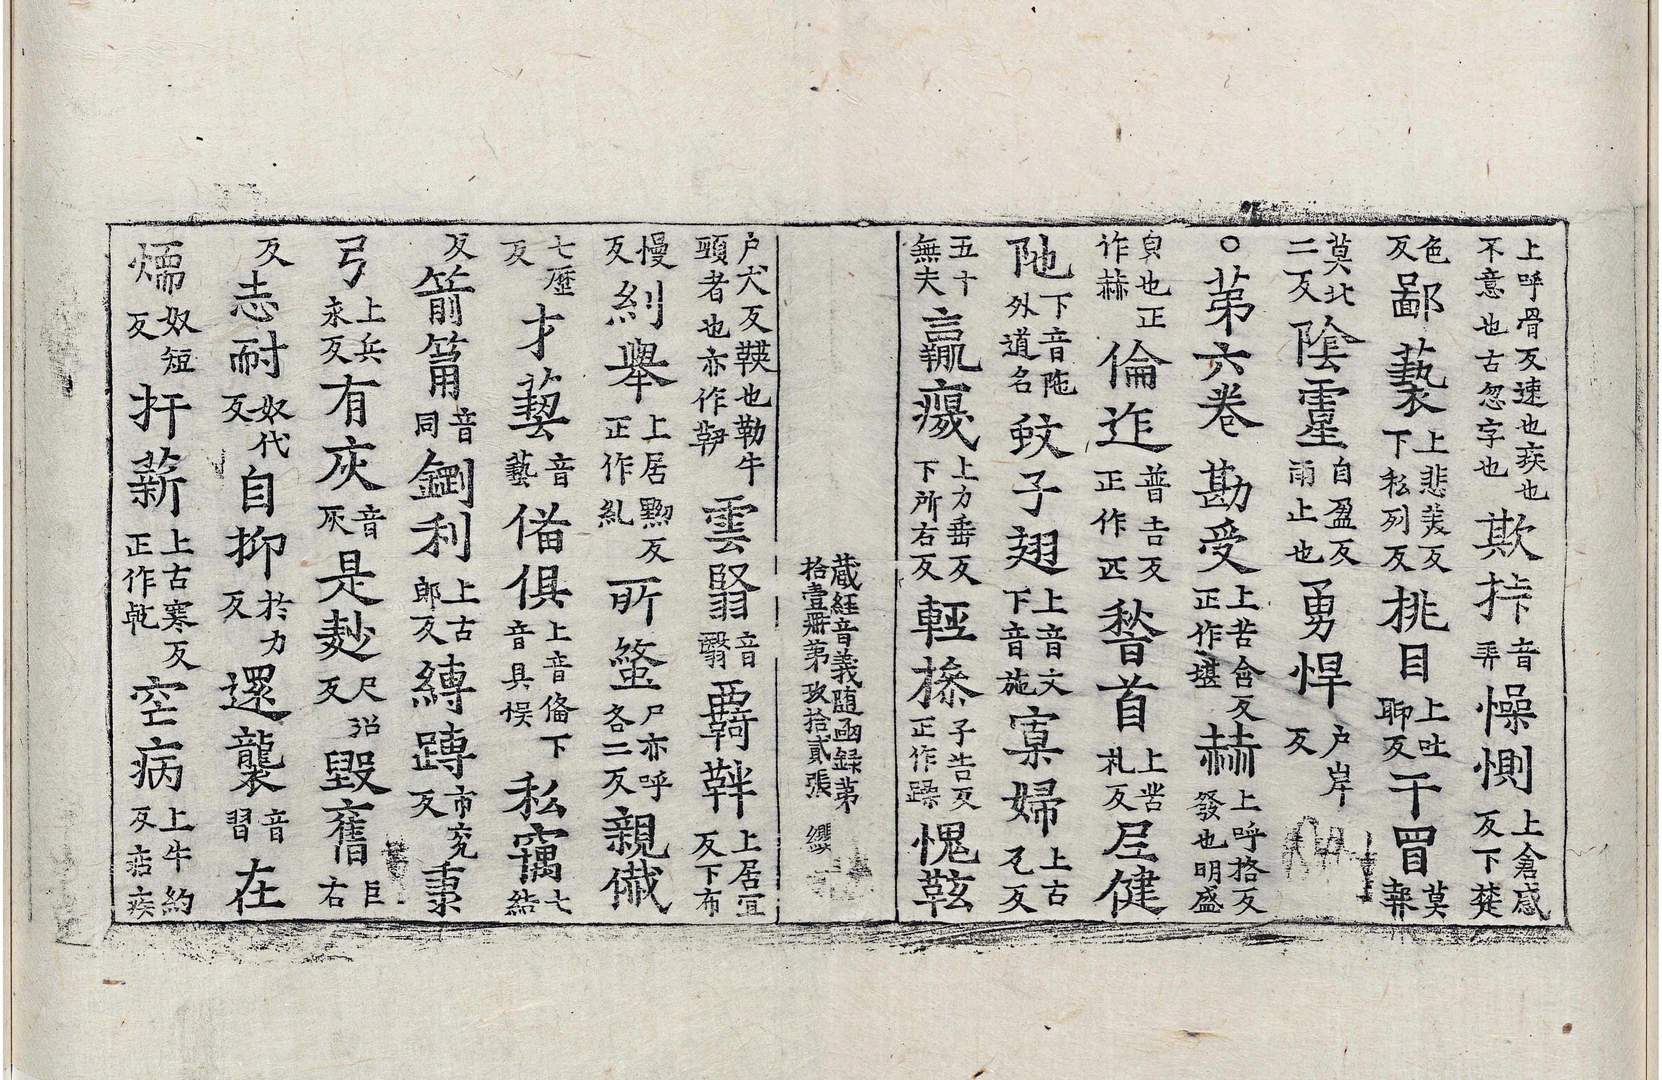 上呼骨反速也疾也不意也古忽字也欺㧣音弄懆惻上倉感反下楚
色反鄙褻上悲美反下私列反挑目上吐聊反干冒莫報
莫北二反陰霔自盈反雨止也勇悍户岸反
○第六卷勘受上苦含反正作堪赫上呼格反發也明盛
皃也正作赫倫迮普吉反正作匹謷首上苦札反㞐健
阤下音陁外道名蚊子翅上音文下音施寡婦上古瓦反
五十無夫羸瘦上力垂反下所右反輕摻子告反正作躁愧䩙
藏経音義随函録第拾壹冊第玖拾貳張 纓
户犬反䩠也勒牛頸者也亦作䩛雲翳音翳羇靽上居宜反下布
慢反糿舉上居黝反正作糺所螫尸亦呼各二反親儎
七歷反才藝音藝偹俱上音俻下音具悮私竊七結
反箭筩音同鋼利上古郎反縛䠦市兖反稟
弓上兵永反有灰音灰是麨尺沼反毀舊巨右
反志耐奴代反自抑於力反還襲音習在
㬉奴短反扞薪上古寒反正作乾空病上牛約反㾑疾